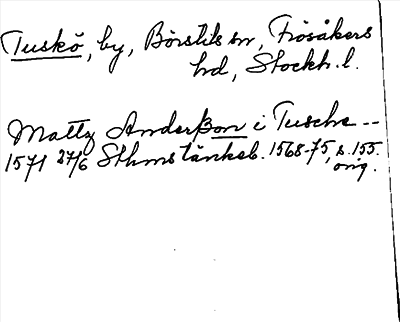 Tuskö, by, Börstils sn, Frösåkers
hd, Stockh. l.
Mattz Anderßon i Tusche --
1571 27/6 Sthms tänkeb. 1568-75, s. 155.
orig.